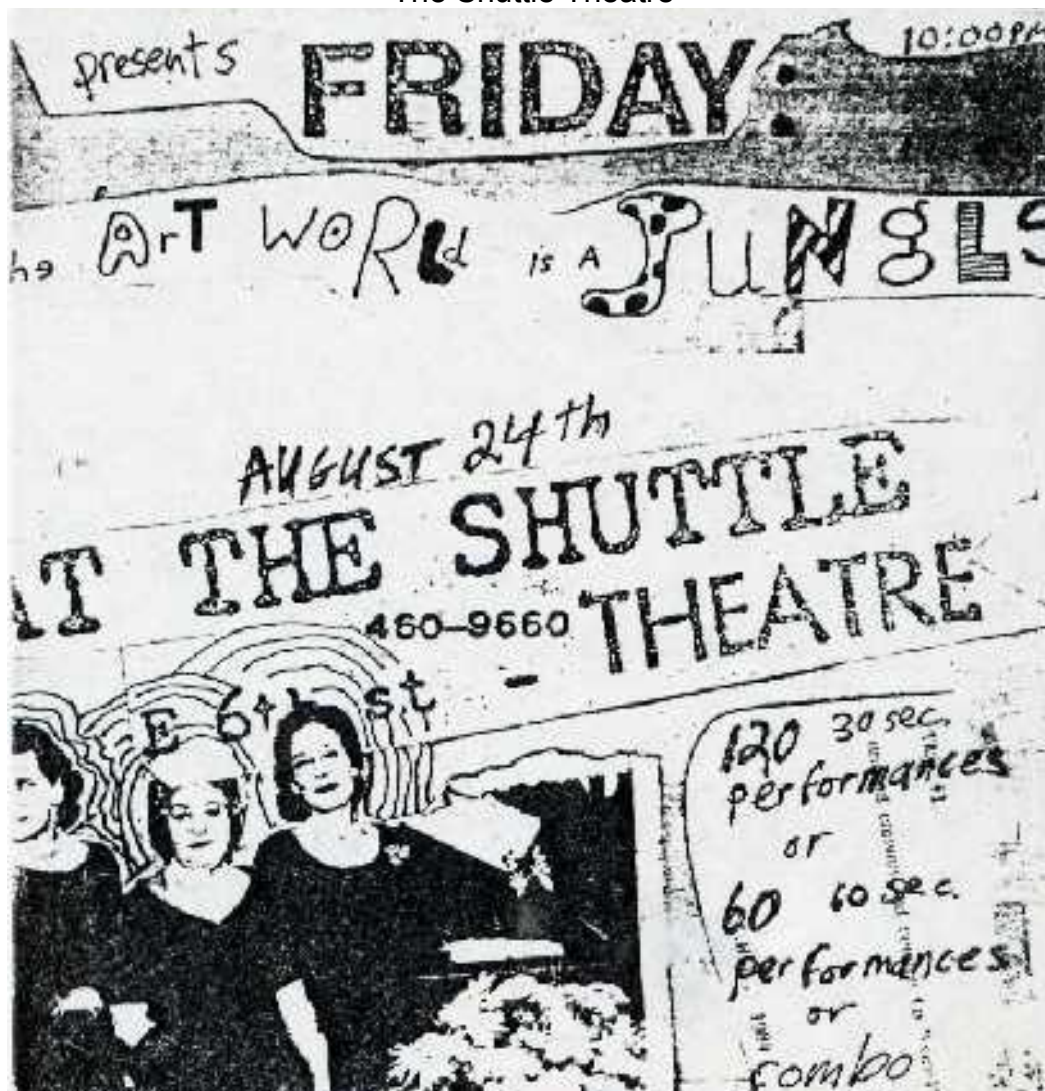 The Shuttle Theatre
presents FRIDAY: 10:00PM
he ArT WoRLd is A JuNgLS
AUGUST 24th
AT THE SHUTTLE
460-9660 THEATRE
E 6th st -
120 30 sec.
performances
or
60 60 sec.
performances
or
combo